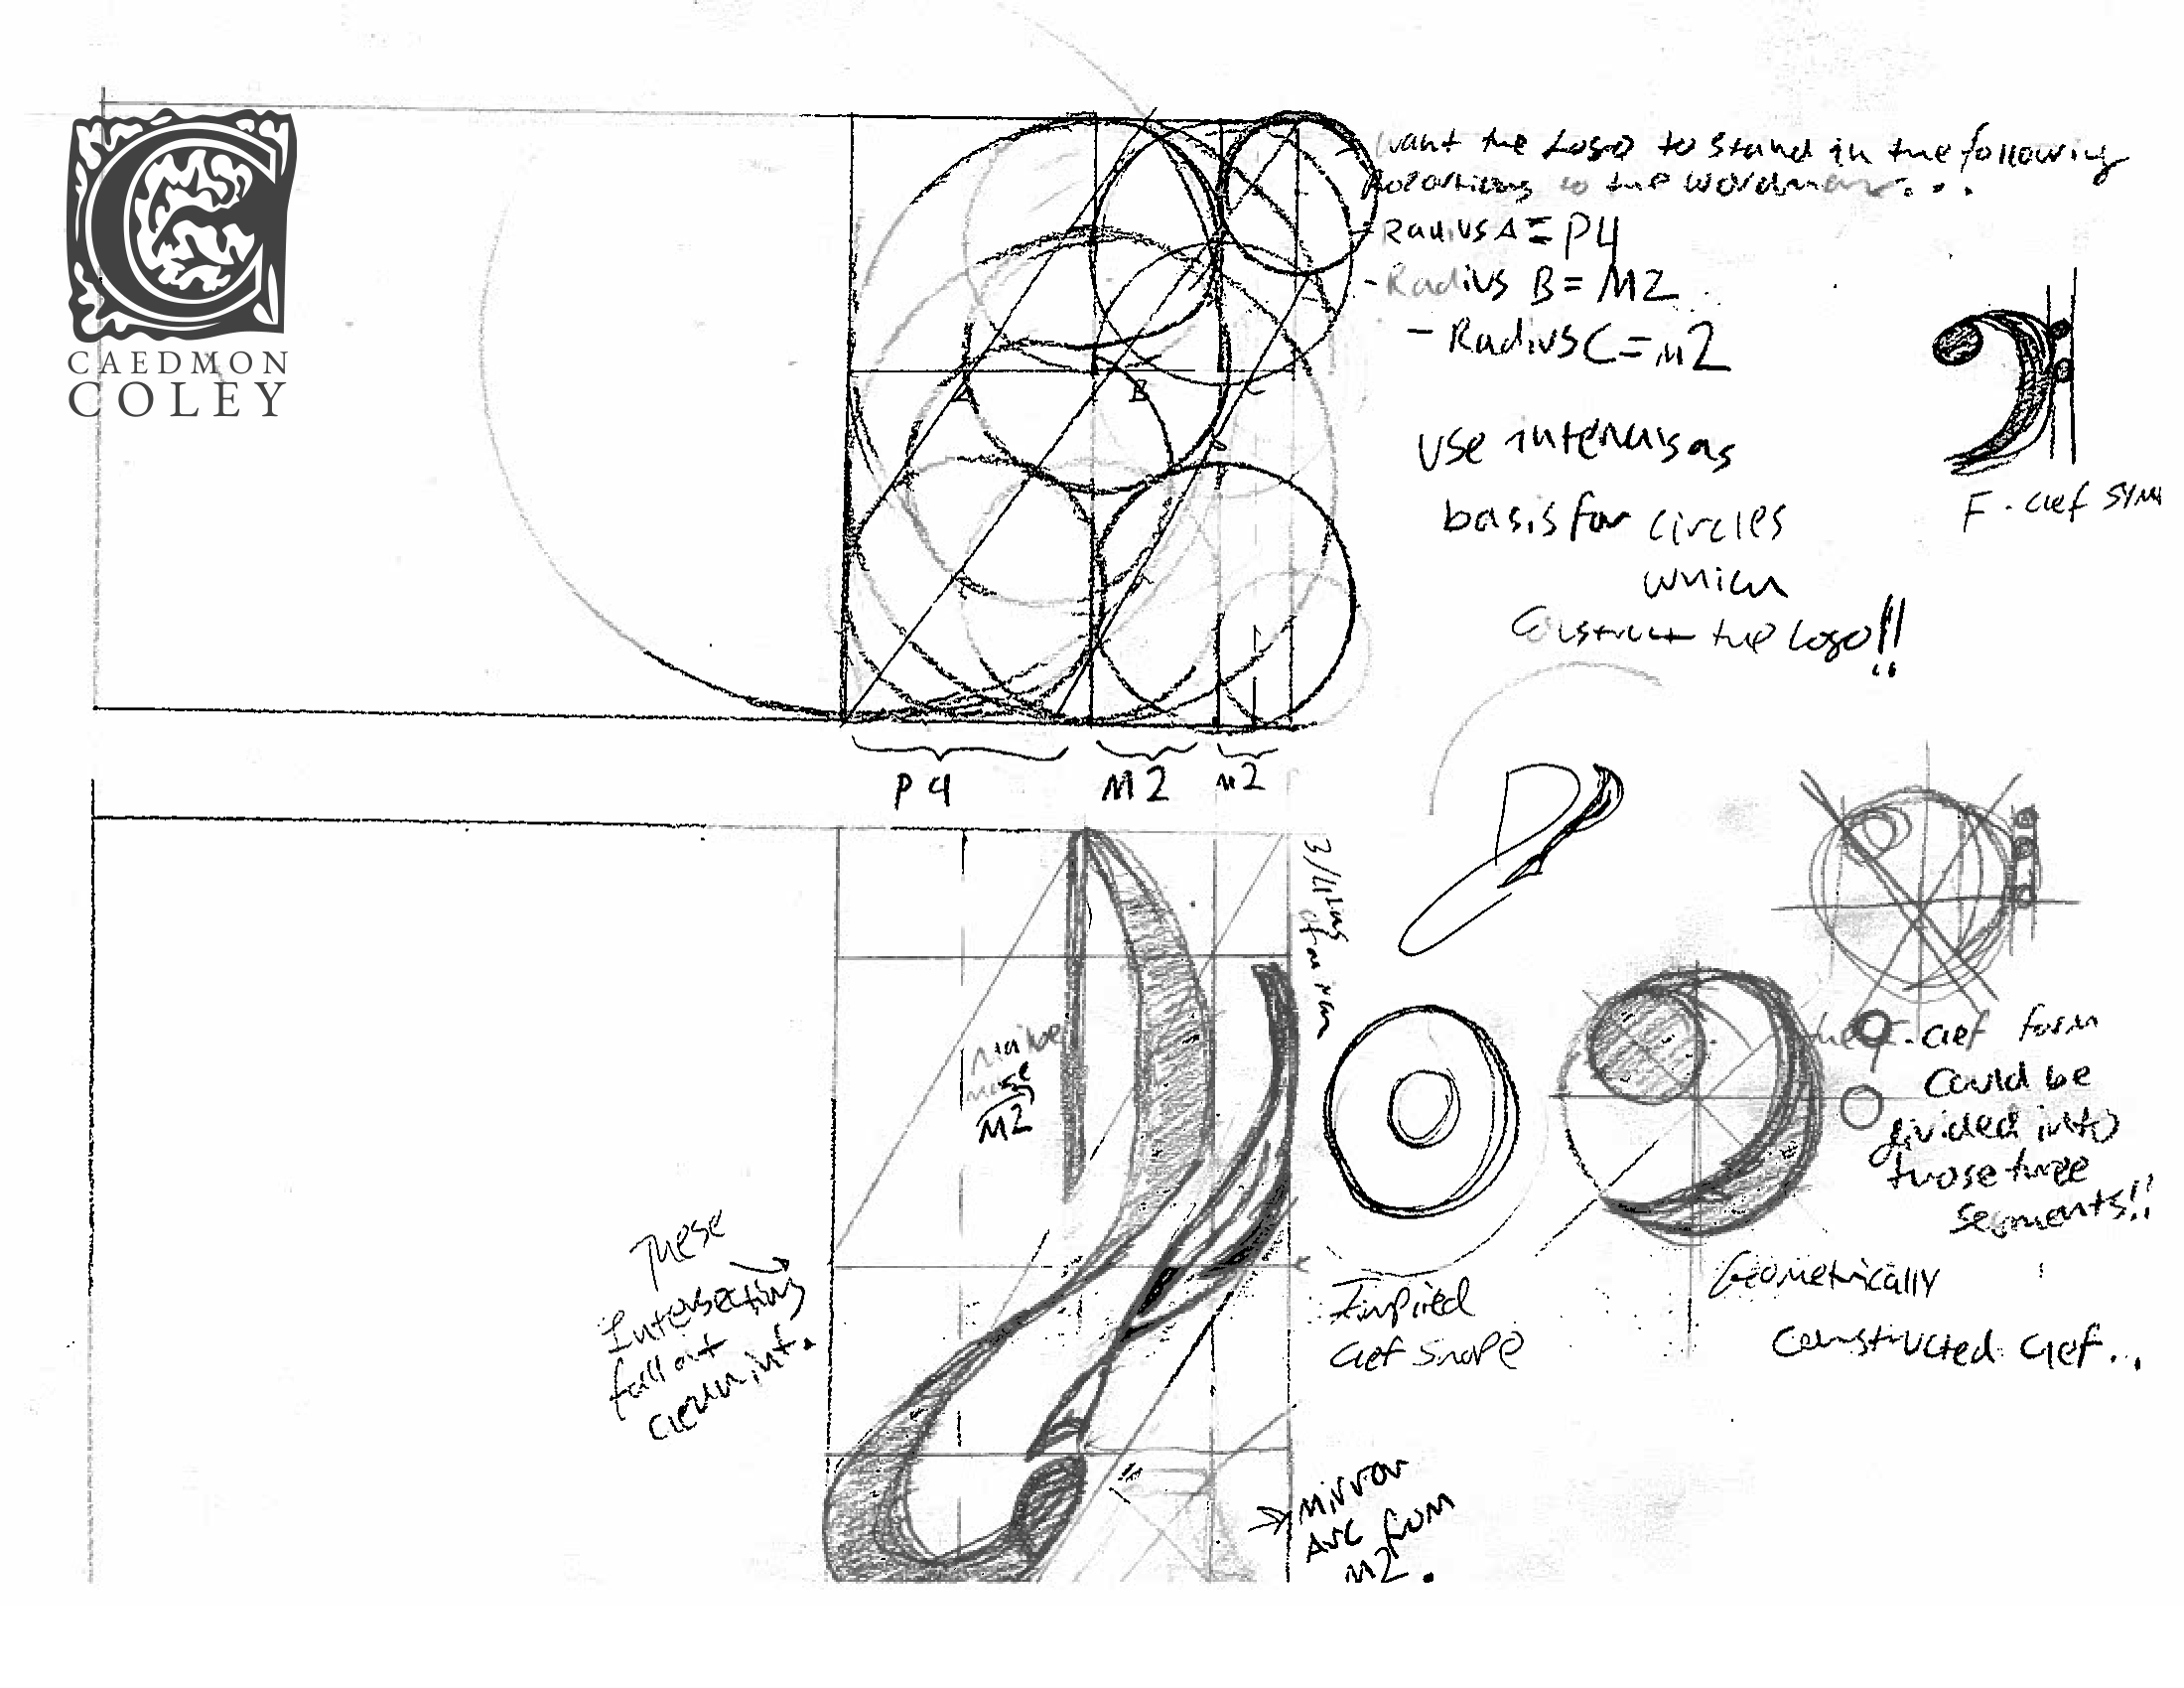 CAEDMON
COLEY
want the Logo to stand in the following
to the wordmark...
- Radius A = P4
- Radius B = M2
- Radius C = m2
use intervals as
basis for circles
which
Construct the Logo!!
A
B
C
F-clef SYM
P4
M2
m2
maybe
M2
These
Intersections
fall out
Inspired
clef shape
the F-clef form
Could be
divided into
those three
segments!!
Geometrically
Constructed Clef...
Mirror
Arc from
M2.